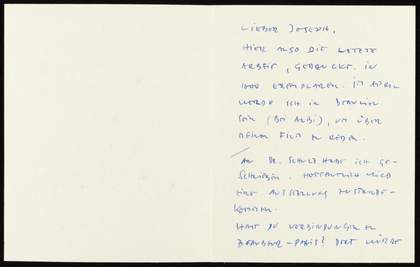 LIEBER JOSEPH,
HIER ALSO DIE LETZTE
ARBEIT, GEDRUCKT IN
EXEMPLAREN. IM APRIL
WERDE ICH IN
SEIN (BEI), UM ÜBER
MEINEN FILM ZU REDEN.
AN DR. SCHULZ HABE ICH GE-
SCHRIEBEN. HOFFENTLICH WIRD
EINE AUSSTELLUNG ZUSTANDE-
KOMMEN.
HAST DU VERBINDUNGEN ZU
BEAUBOUR-PARIS? DORT WÜRDE